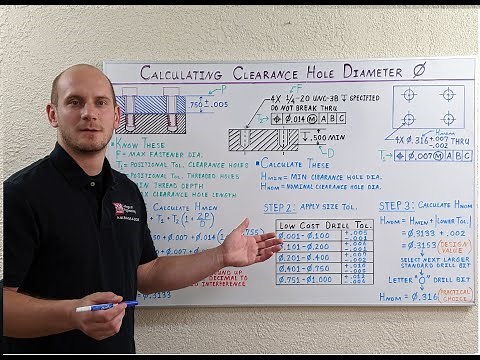 CALCULATING CLEARANCE HOLE DIAMETER Ø
P
.750±.005
F
4X ¼-20 UNC-3B ↧ SPECIFIED
DO NOT BREAK THRU
T₂ ⌖ Ø.014 Ⓜ A B C
.500 MIN
D
HNOM
4X Ø.316 +.007 -.002 THRU
T₁ ⌖ Ø.007 Ⓜ A B C
•KNOW THESE
F=MAX FASTENER DIA.
T₁=POSITIONAL TOL. CLEARANCE HOLES
POSITIONAL TOL. THREADED HOLES
MIN THREAD DEPTH
MAX CLEARANCE HOLE LENGTH
•CALCULATE THESE
HMIN= MIN CLEARANCE HOLE DIA.
HNOM= NOMINAL CLEARANCE HOLE DIA.
CALCULATE HMIN
+ T₁ + T₂(1+ 2P/D)
50 + Ø.007 + Ø.014(1+ .755)
ROUND UP
DECIMAL TO
NO INTERFERENCE
Ø.3133
STEP 2: APPLY SIZE TOL.
LOW COST DRILL TOL.
Ø.001-Ø.100 +.003 -.001
Ø.101-Ø.200
Ø.201-Ø.400
Ø.401-Ø.750
Ø.751-Ø1.000
STEP 3: CALCULATE HNOM
HNOM= HMIN+|LOWER TOL.|
= Ø.3133 + .002
= Ø.3153 (DESIGN VALUE)
SELECT NEXT LARGER
STANDARD DRILL BIT
LETTER "O" DRILL BIT
HNOM = Ø.316 (PRACTICAL CHOICE)